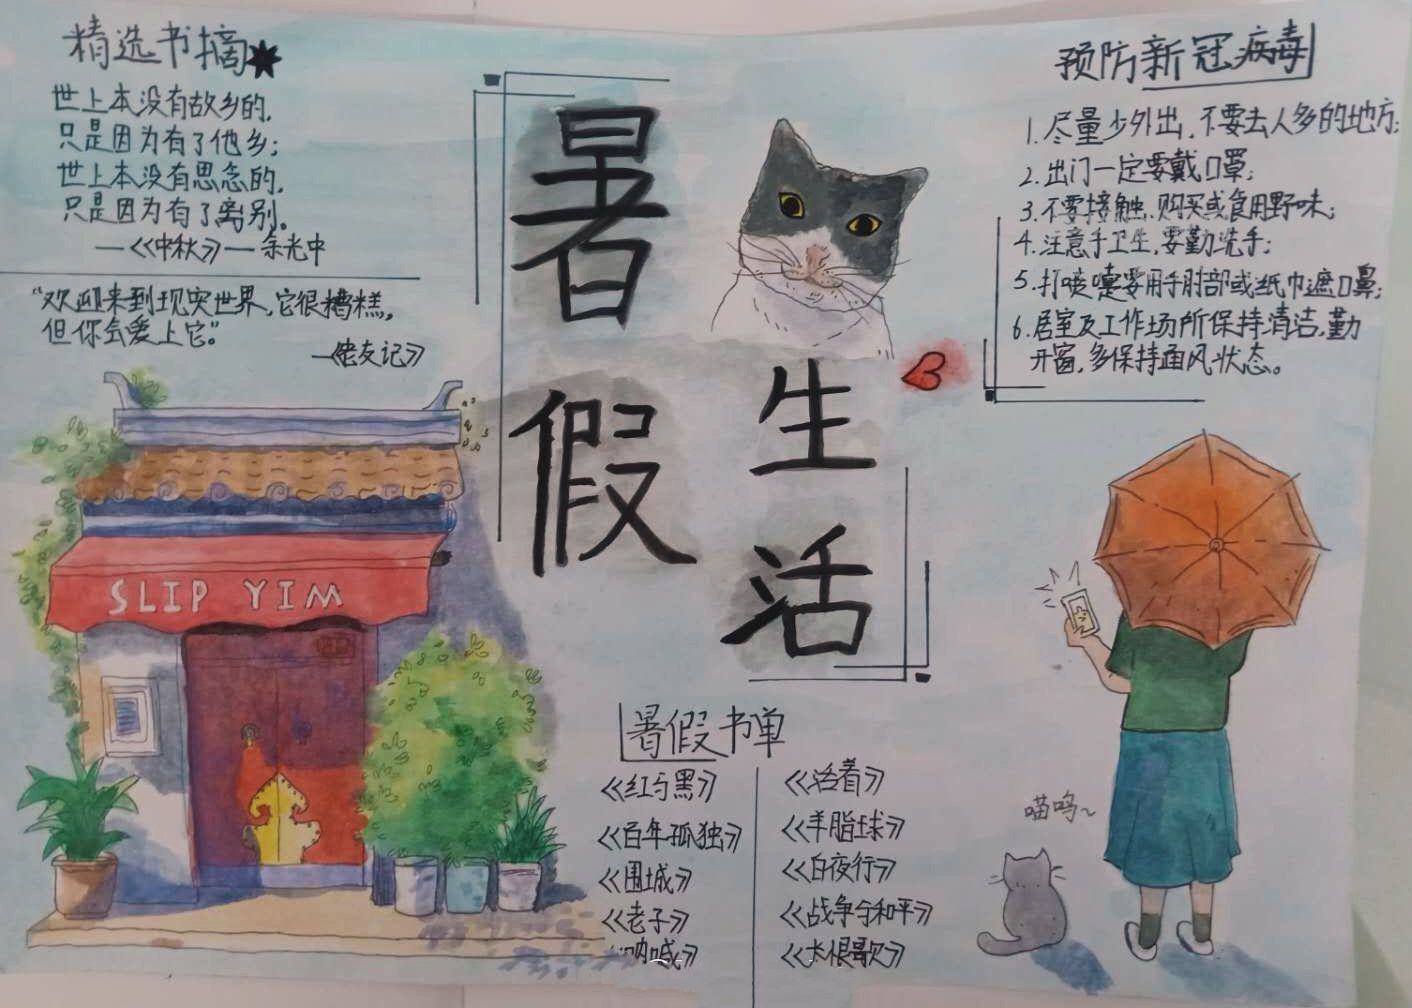 精选书摘
世上本没有故乡的,
只是因为有了他乡;
世上本没有思念的,
只是因为有了离别。
—《中秋》— 余光中
“欢迎来到现实世界,它很糟糕,
但你会爱上它。”
—《老友记》
暑假
生活
预防新冠病毒
1.尽量少外出,不要去人多的地方;
2.出门一定要戴口罩;
3.不要接触,购买或食用野味;
4.注意手卫生,要勤洗手;
5.打喷嚏要用手肘部或纸巾遮口鼻;
6.居室及工作场所保持清洁,勤
开窗,多保持通风状态。
SLIP YIM
暑假书单
《红与黑》
《百年孤独》
《围城》
《老子》
《呐喊》
《活着》
《羊脂球》
《白夜行》
《战争与和平》
《长恨歌》
喵呜~